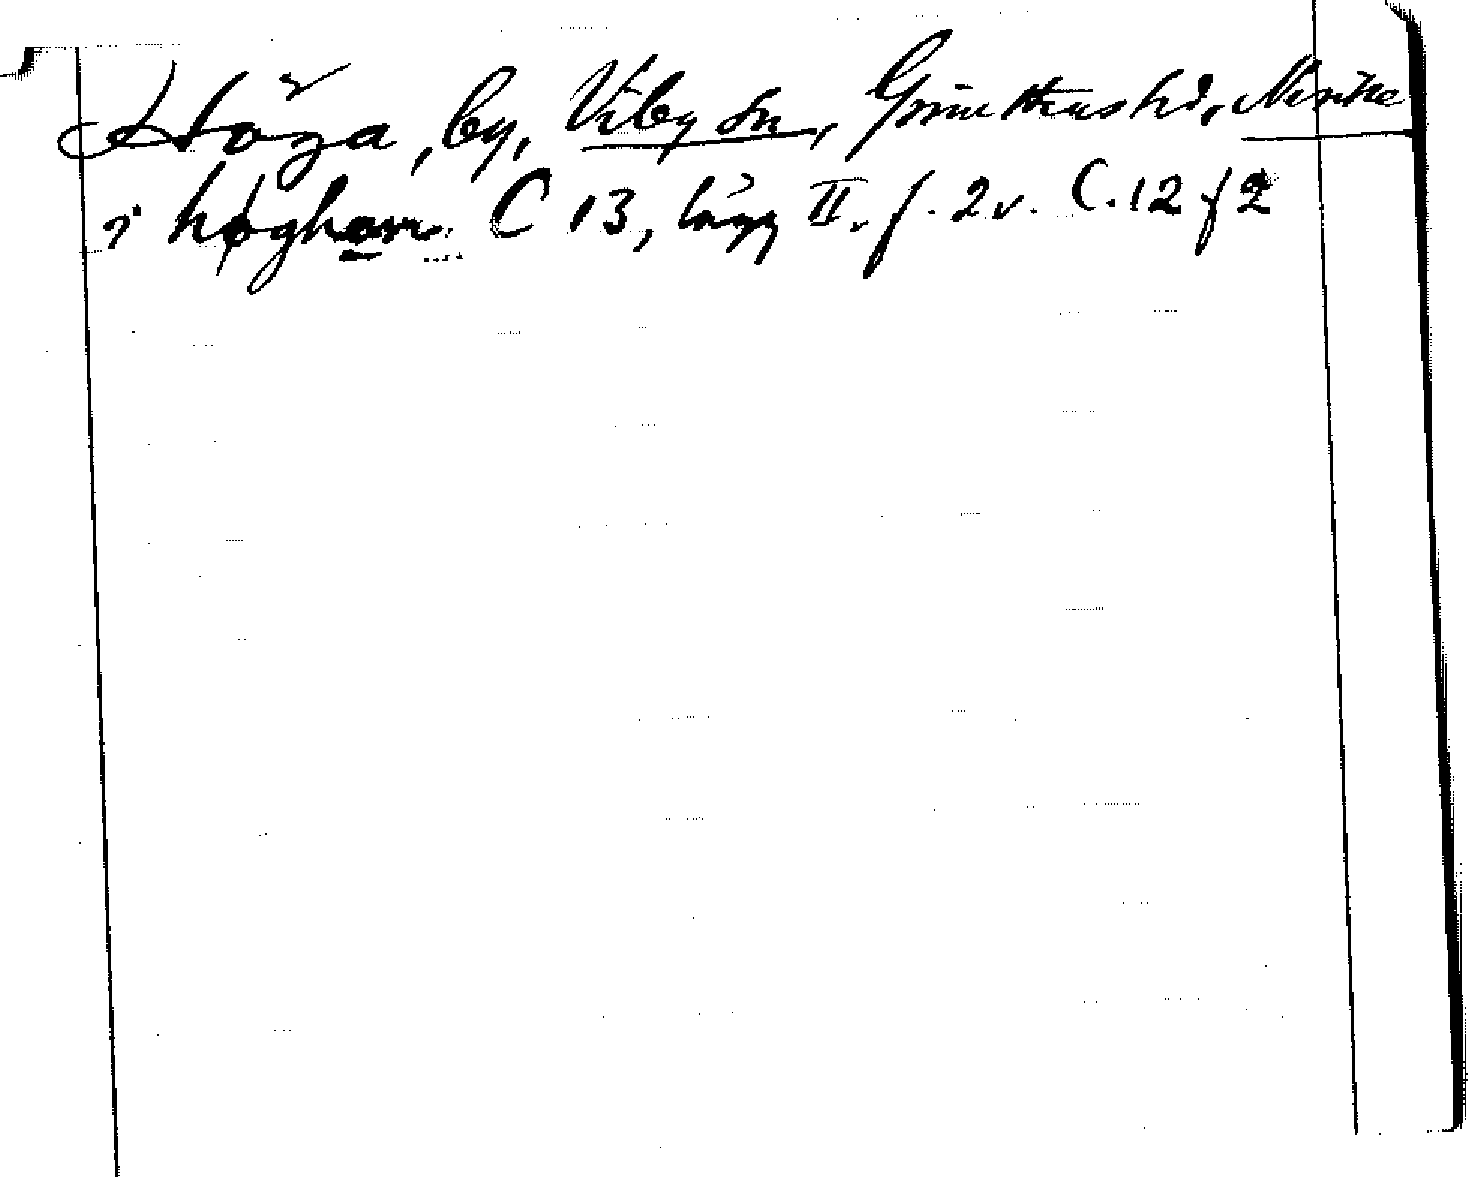 Höga, by, Viby sn, Grimstens hd, Nerike
i høghom C 13, lägg II. f. 2v. C. 12 f 2